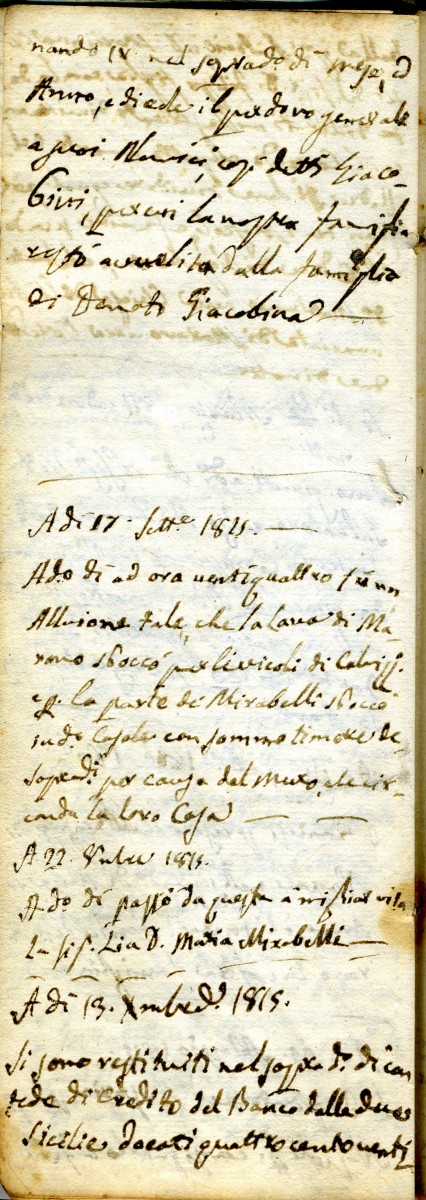 nando IV. nel soprado. di mese, ed
Anno, e diede il perdono generale
a suoi Nemici, così detti Giaco-
bini, per cui la nostra famiglia
restò avvelita dalla famiglia
di Donato Giacobina
A di 17. Sette. 1815.
Ado. di ad ora ventiquattro fù un
Alluione tale, che la Lava di Ma-
rono sboccò per li vicoli di
e p. la parte de Mirabelli sboccò
in do. Casale con sommo timore de
sopradi. per causa del Muro, che cir-
conda la loro Casa
A 22. 1815.
A do. di passò da questa a miglior vita
la Sig. Zia D. Maria Mirabelli
A di 13. Xmbre do. 1815.
Si sono restituiti nel sopra do. di
fede di Credito del Banco delle due
Sicilie docati quattrocentoventi